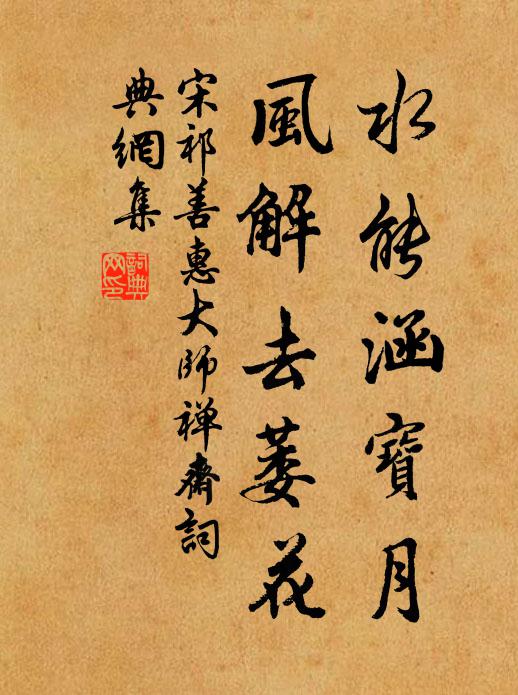 水能涵寶月
風解去萎花
宋祁善惠大師禅齋詞
典網集
詞典
网印